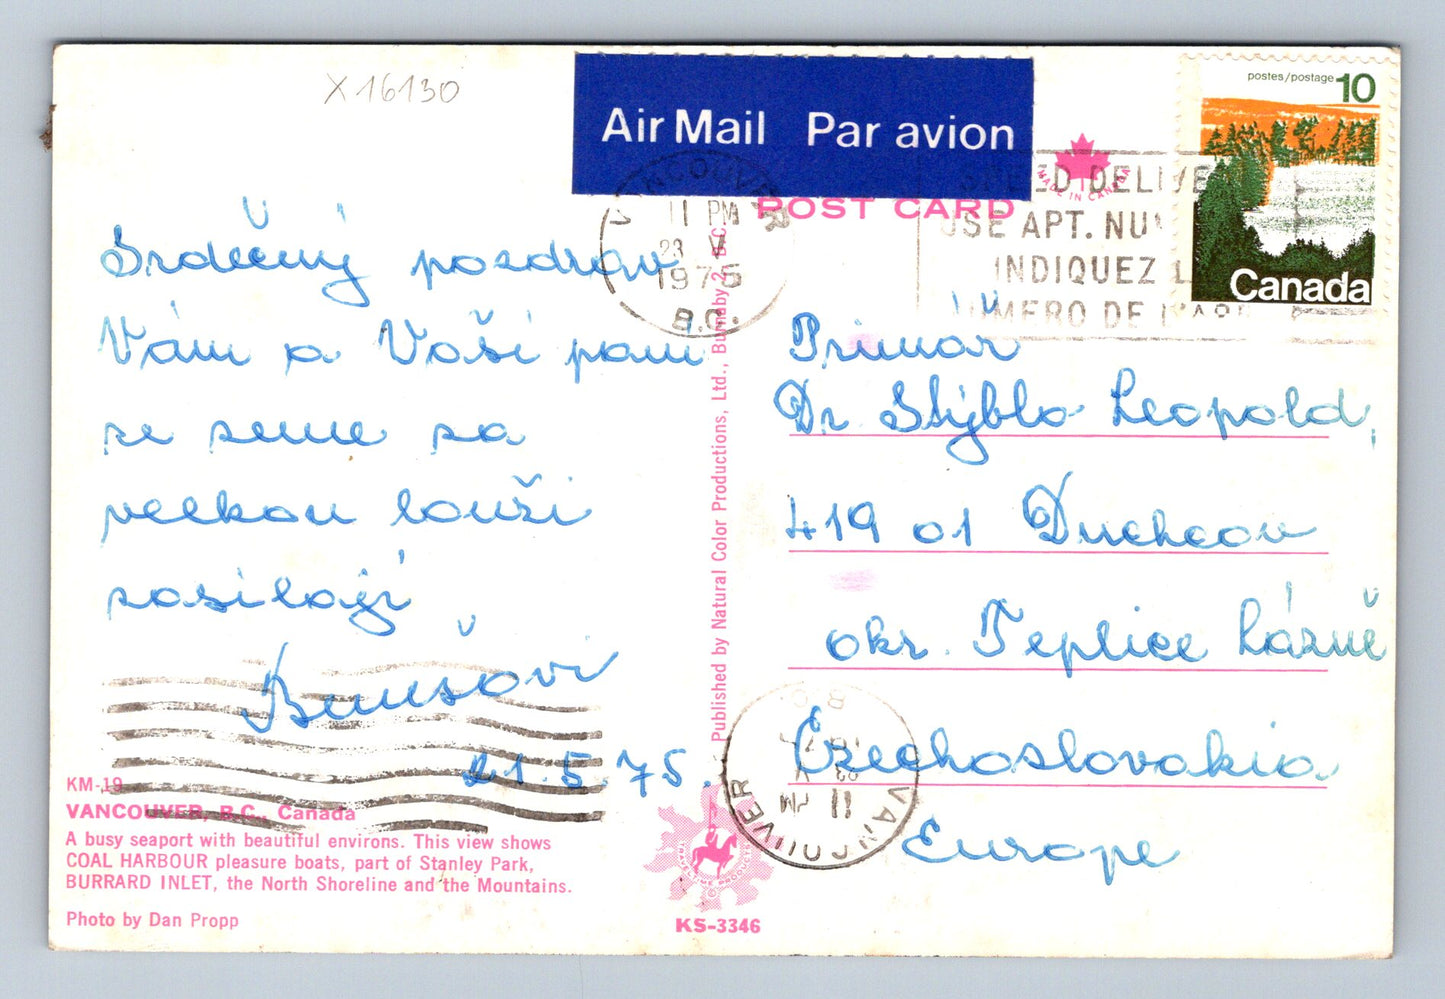 X16130
Air Mail Par avion
postes/postage 10
Canada
MADE IN CANADA
POST CARD
VANCOUVER
11 PM
23 V
1975
B.C.
SPEED DELIVE
USE APT. NU
INDIQUEZ L
NUMERO DE L'APP
Srdečný pozdrav
Vám a Vaší paní
ze země za
velkou louži
posílají
Benešovi
21.5.75.
Primář
Dr. Stýblo Leopold,
419 01 Duchcov
okr. Teplice Lázně
Czechoslovakia
Europe
Published by Natural Color Productions, Ltd., Burnaby 2, B.C.
VANCOUVER
11 PM
23 V
B.C.
KM-19
VANCOUVER, B.C., Canada
A busy seaport with beautiful environs. This view shows
COAL HARBOUR pleasure boats, part of Stanley Park,
BURRARD INLET, the North Shoreline and the Mountains.
Photo by Dan Propp
TRAVELTIME PRODUCT
KS-3346